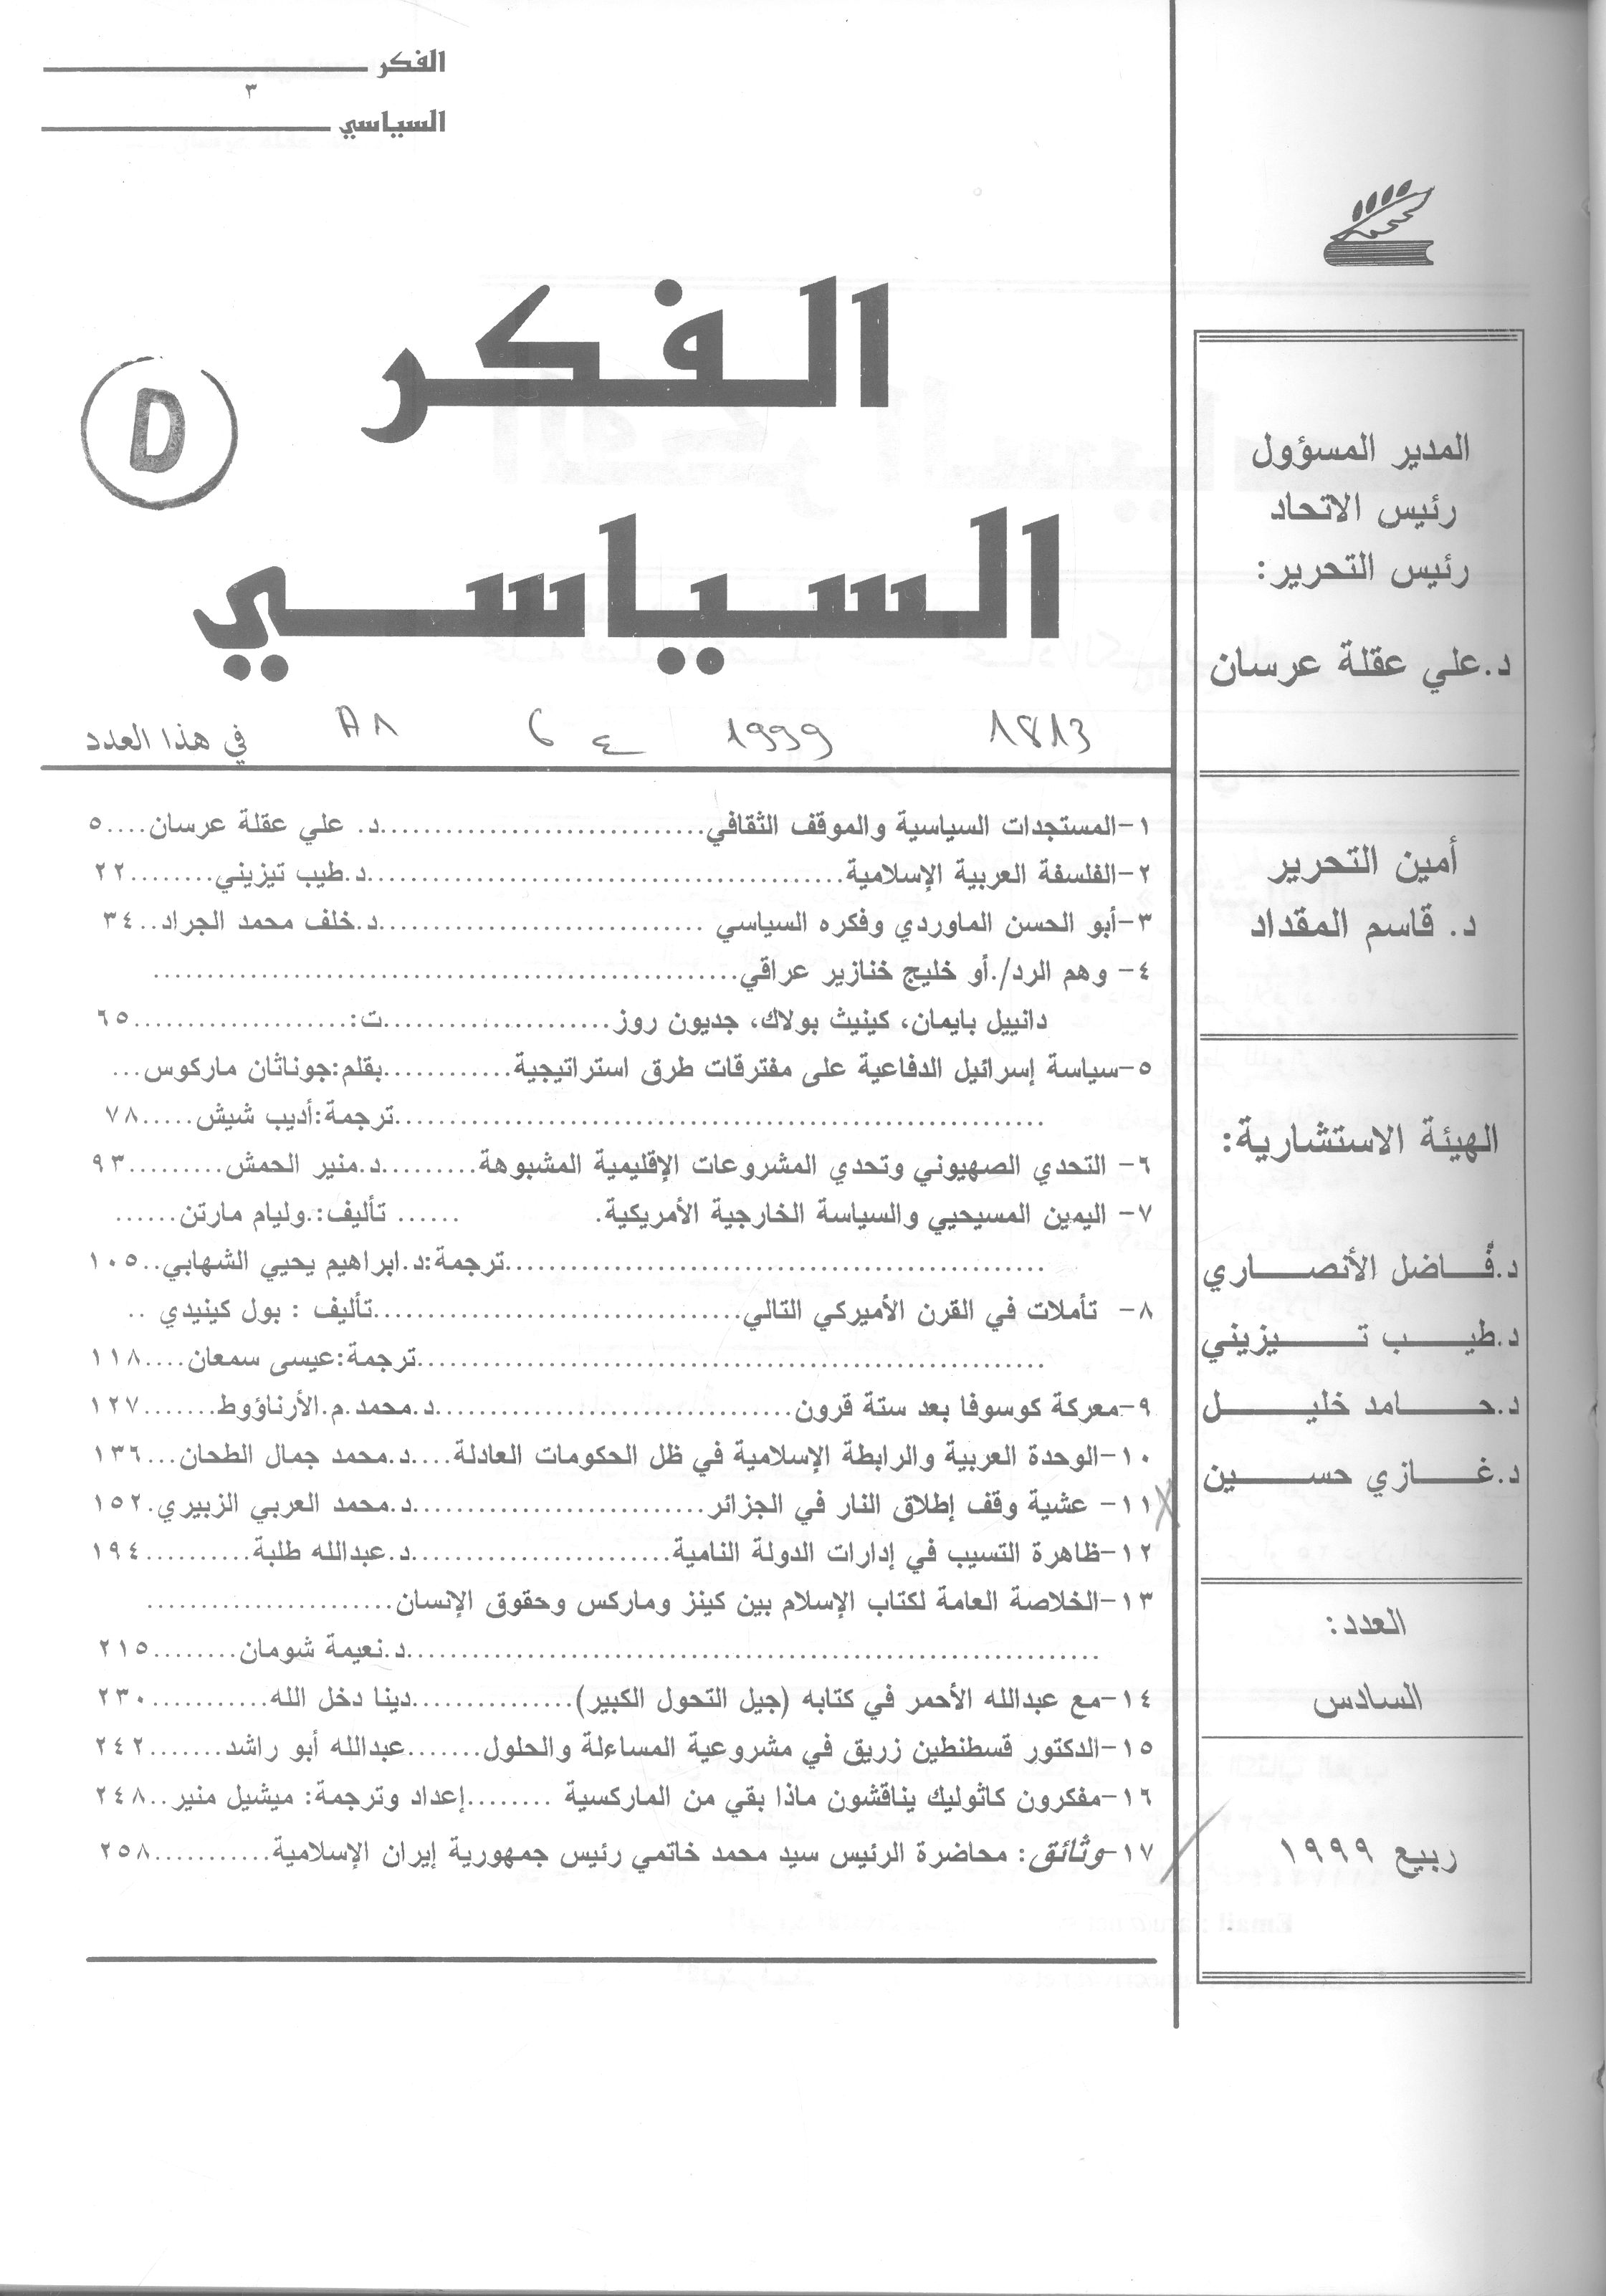 الفكر
٣
السياسي
الفكر
السياسي
D
1813 1999 ع 6 A1
في هذا العدد
١-المستجدات السياسية والموقف الثقافي..............................د. علي عقلة عرسان....٥
٢-الفلسفة العربية الإسلامية.............................................د.طيب تيزيني........٢٢
٣-أبو الحسن الماوردي وفكره السياسي ................................د.خلف محمد الجراد..٣٤
٤- وهم الرد/.أو خليج خنازير عراقي........................................................
دانييل بايمان، كينيث بولاك، جديون روز.....................ت:....................٦٥
٥-سياسة إسرائيل الدفاعية على مفترقات طرق استراتيجية............بقلم:جوناثان ماركوس...
..............................................................ترجمة:أديب شيش.....٧٨
٦- التحدي الصهيوني وتحدي المشروعات الإقليمية المشبوهة.........د.منير الحمش.........٩٣
٧- اليمين المسيحيي والسياسة الخارجية الأمريكية. ...... تأليف:.وليام مارتن......
...................................................ترجمة:د.ابراهيم يحيي الشهابي..١٠٥
٨- تأملات في القرن الأميركي التالي...................................تأليف : بول كينيدي ..
............................................................ترجمة:عيسى سمعان....١١٨
٩-معركة كوسوفا بعد ستة قرون..................................د.محمد.م.الأرناؤوط.......١٢٧
١٠-الوحدة العربية والرابطة الإسلامية في ظل الحكومات العادلة....د.محمد جمال الطحان...١٣٦
١١- عشية وقف إطلاق النار في الجزائر............................د.محمد العربي الزبيري.١٥٢
١٢-ظاهرة التسيب في إدارات الدولة النامية.........................د.عبدالله طلبة..........١٩٤
١٣-الخلاصة العامة لكتاب الإسلام بين كينز وماركس وحقوق الإنسان.......................
..................................................................د.نعيمة شومان........٢١٥
١٤-مع عبدالله الأحمر في كتابه (جيل التحول الكبير)...............دينا دخل الله...........٢٣٠
١٥-الدكتور قسطنطين زريق في مشروعية المساءلة والحلول.......عبدالله أبو راشد.......٢٤٢
١٦-مفكرون كاثوليك يناقشون ماذا بقي من الماركسية ........إعداد وترجمة: ميشيل منير..٢٤٨
١٧-وثائق: محاضرة الرئيس سيد محمد خاتمي رئيس جمهورية إيران الإسلامية...........٢٥٨
المدير المسؤول
رئيس الاتحاد
رئيس التحرير:
د.علي عقلة عرسان
أمين التحرير
د. قاسم المقداد
الهيئة الاستشارية:
د.فـاضل الأنصـاري
د.طيـب تـيزيني
د.حـامد خليـل
د.غـازي حسـين
العدد:
السادس
ربيع ١٩٩٩